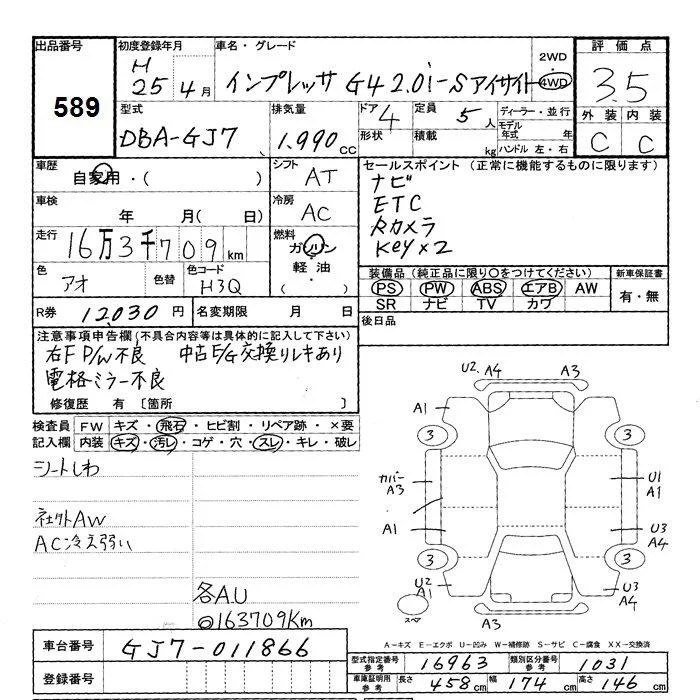 出品番号
589
初度登録年月
H
25年 4月
車名・グレード
インプレッサ G4 2.0i-S アイサイト
2WD
・
4WD
評価点
3.5
外装 内装
C C
型式
DBA-GJ7
排気量
1.990 cc
ドア 4
形状
定員 5人
積載 kg
ディーラー・並行
モデル年式 年
ハンドル 左・右
車歴
自家用・( )
シフト AT
車検 年 月( 日)
冷房 AC
走行 16万3千709km
燃料
ガソリン
・
軽油
( )
色 アオ 色替
色コード H3Q
R券 12,030円
名変期限 月 日
セールスポイント (正常に機能するものに限ります)
ナビ
ETC
Rカメラ
Key×2
装備品 (純正品に限り○をつけてください)
PS PW ABS エアB AW
SR ナビ TV カワ
新車保証書
有・無
後日品
注意事項申告欄(不具合内容等は具体的に記入して下さい)
右F P/W不良 中古E/G交換りレキあり
電格ミラー不良
修復歴 有 [箇所 ]
検査員記入欄
FW キズ・飛石・ヒビ割・リペア跡・×要
内装 キズ・汚レ・コゲ・穴・スレ・キレ・破レ
シートしわ
社外AW
AC冷え弱い
各A.U
◎163709Km
U2. A4 A3
A1
3 3
カバー
A3
U1
A1
A1
U3
A4
3 3
U2
A1
U3
A4
スペア
A3
A-キズ E-エクボ U-凹み W-補修跡 S-サビ C-腐食 XX-交換済
車台番号 GJ7-011866
登録番号
型式指定番号 参考 16963
類別区分番号 参考 1031
車庫証明用 参考 長さ 458cm 幅 174cm 高さ 146cm